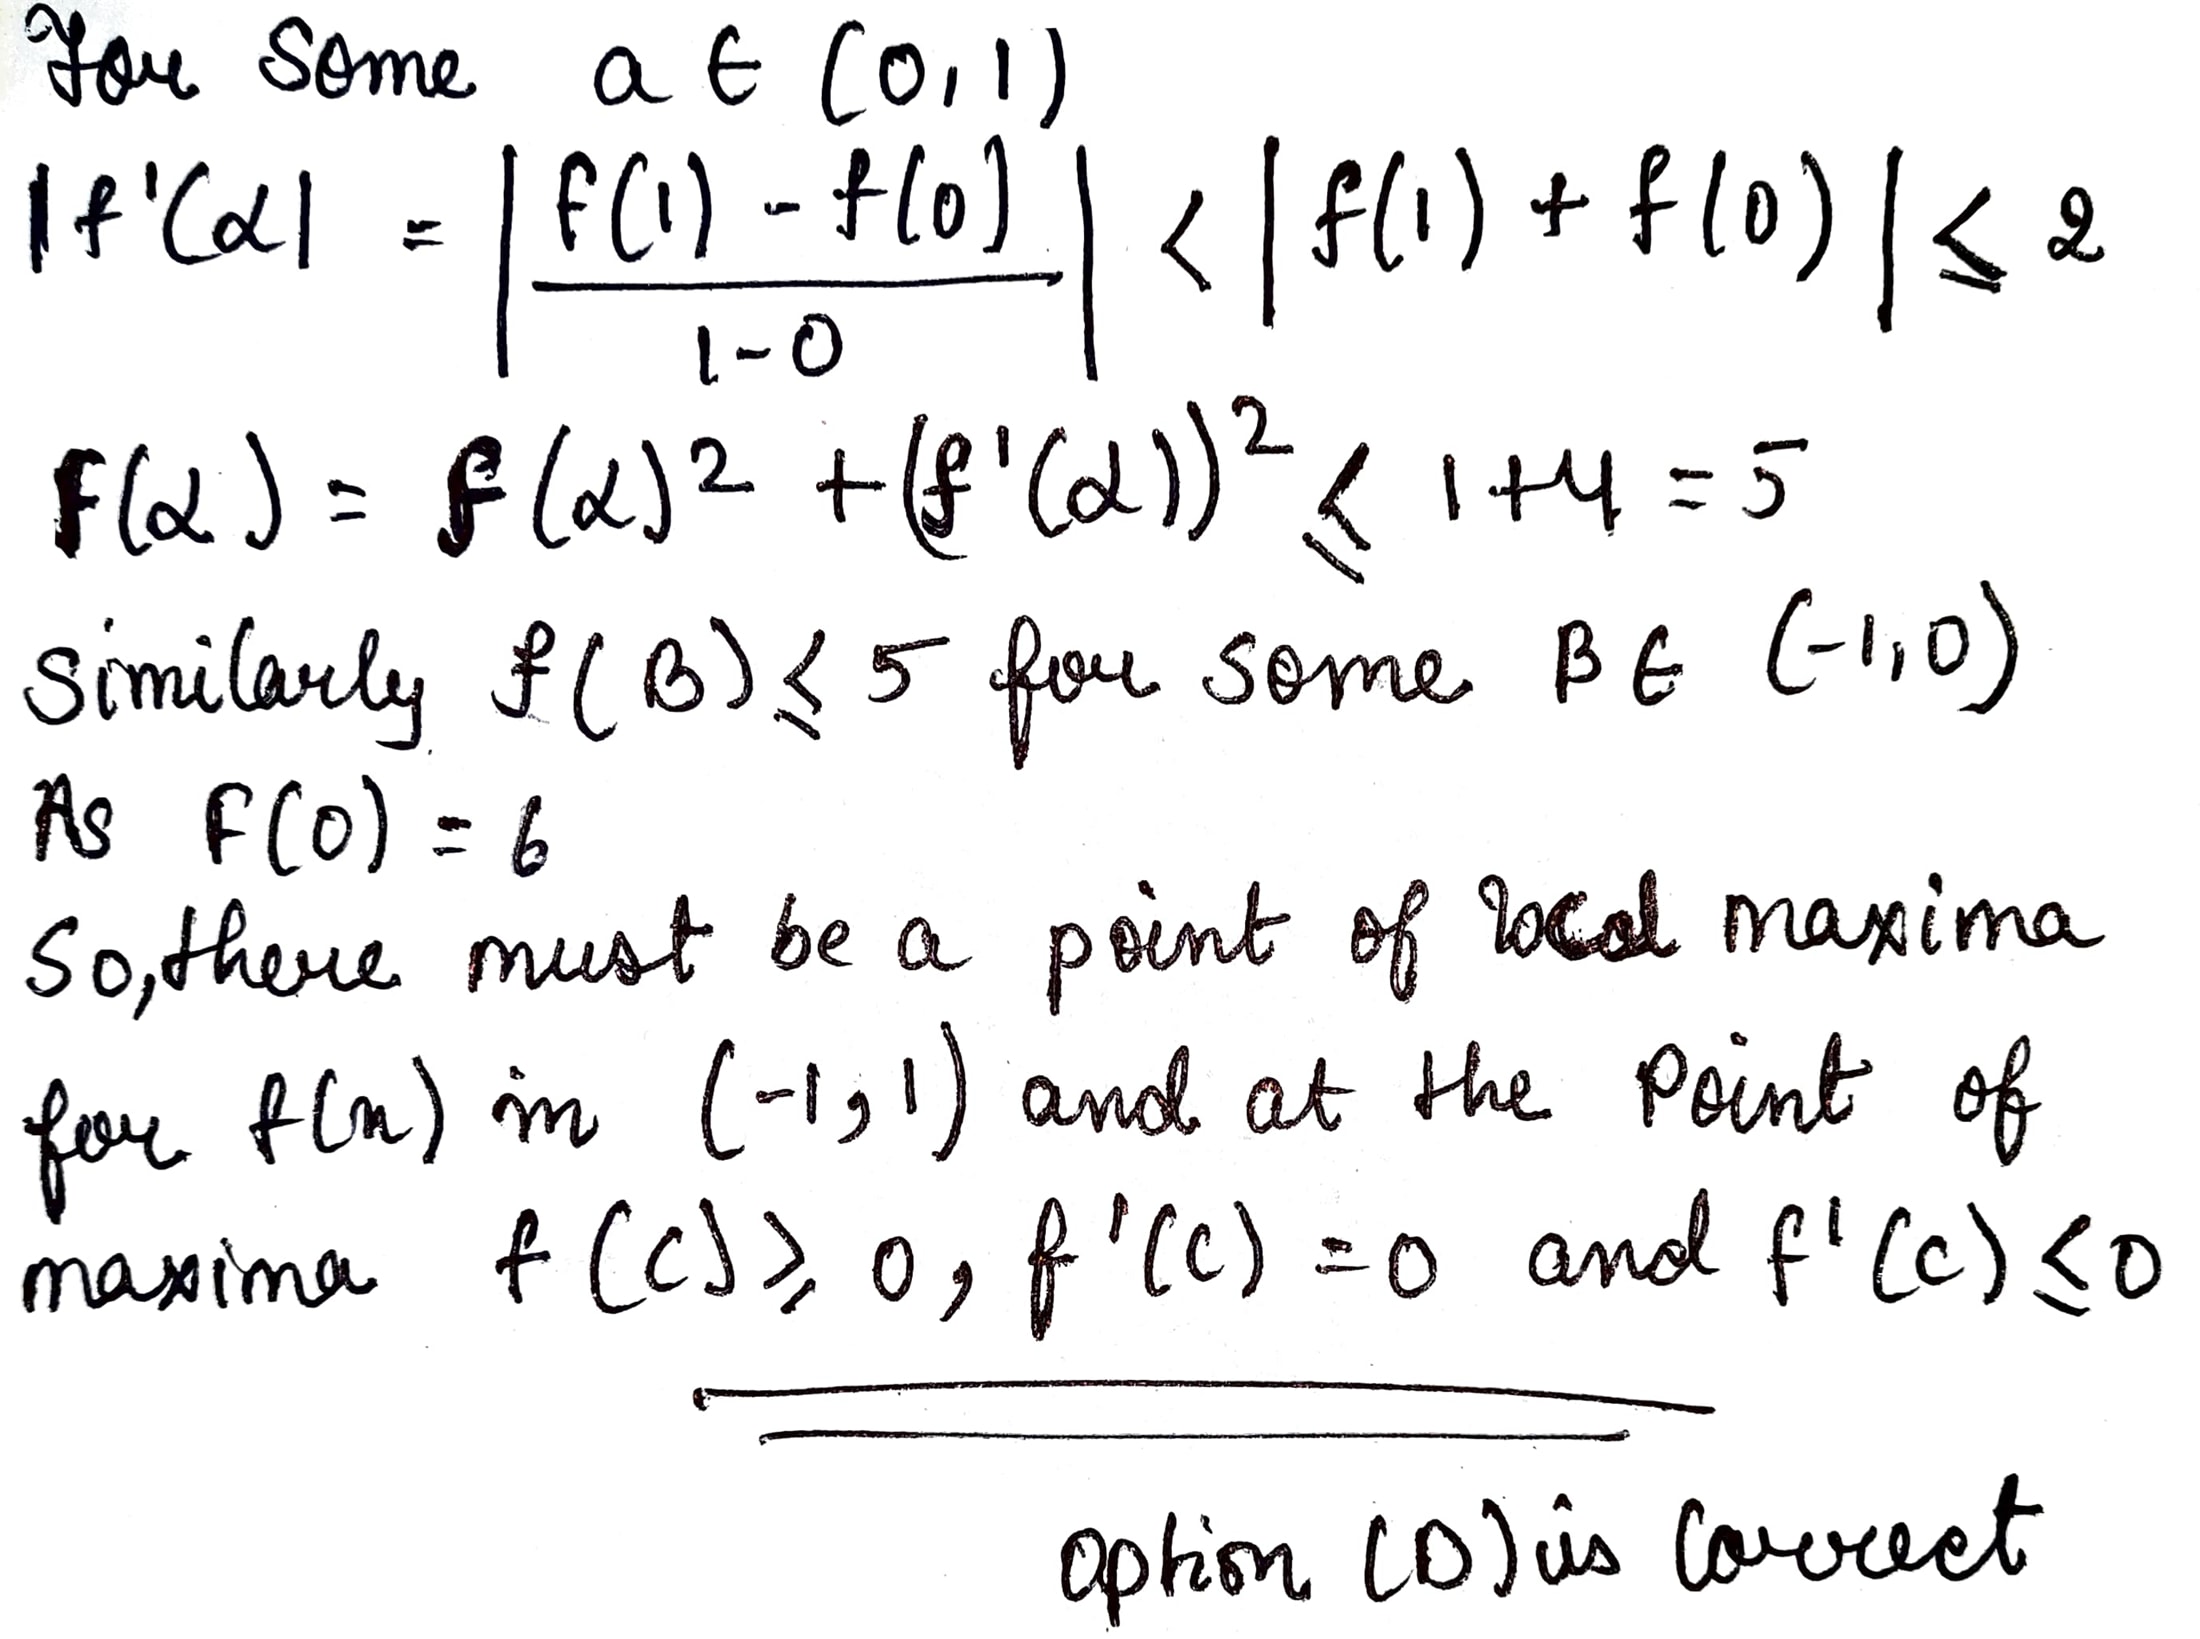 For Some a ∈ (0,1)
|f'(α| = |f(1) - f(0) / 1-0| < |f(1) + f(0)| ≤ 2
F(α) = f(α)² + (f'(α))² ≤ 1+4 = 5
Similarly f(B) ≤ 5 for some B ∈ (-1,0)
As F(0) = 6
So, there must be a point of local maxima
for f(n) in (-1,1) and at the point of
maxima f(c) ≥ 0, f'(c) = 0 and f'(c) ≤ 0
option (D) is correct